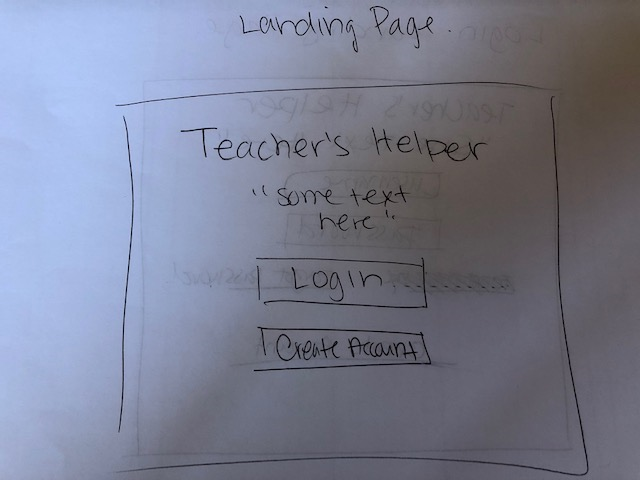 Landing Page.
Teacher's Helper
"some text
here"
Login
Create Account